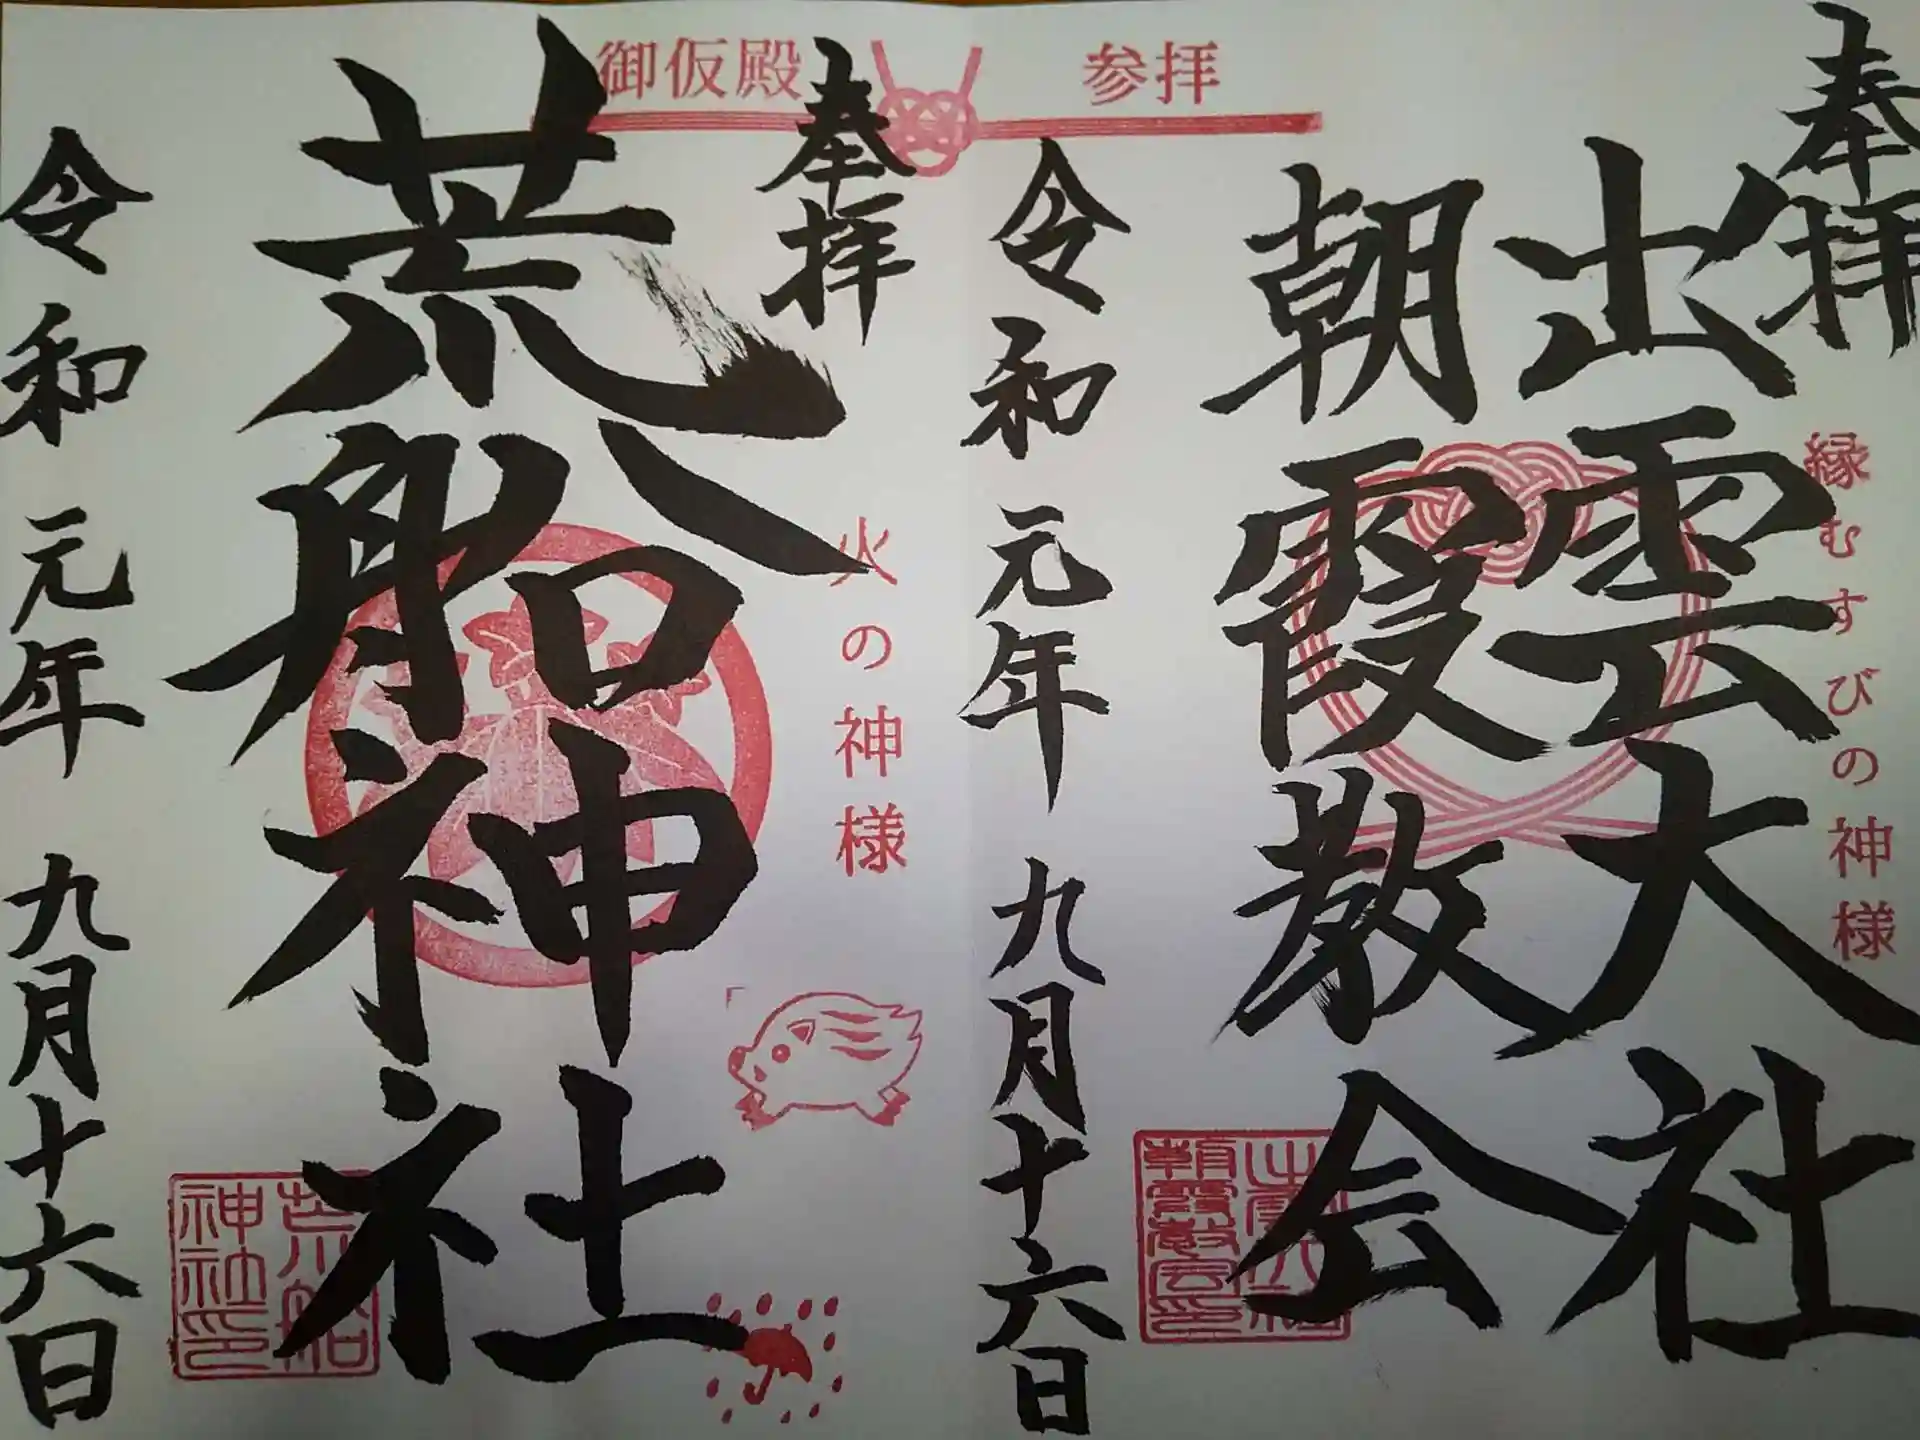 奉拝
縁むすびの神様
出雲大社
朝霞教会
令和元年 九月十六日
御仮殿 参拝
奉拝
火の神様
荒船神社
令和元年 九月十六日
荒船
神社印